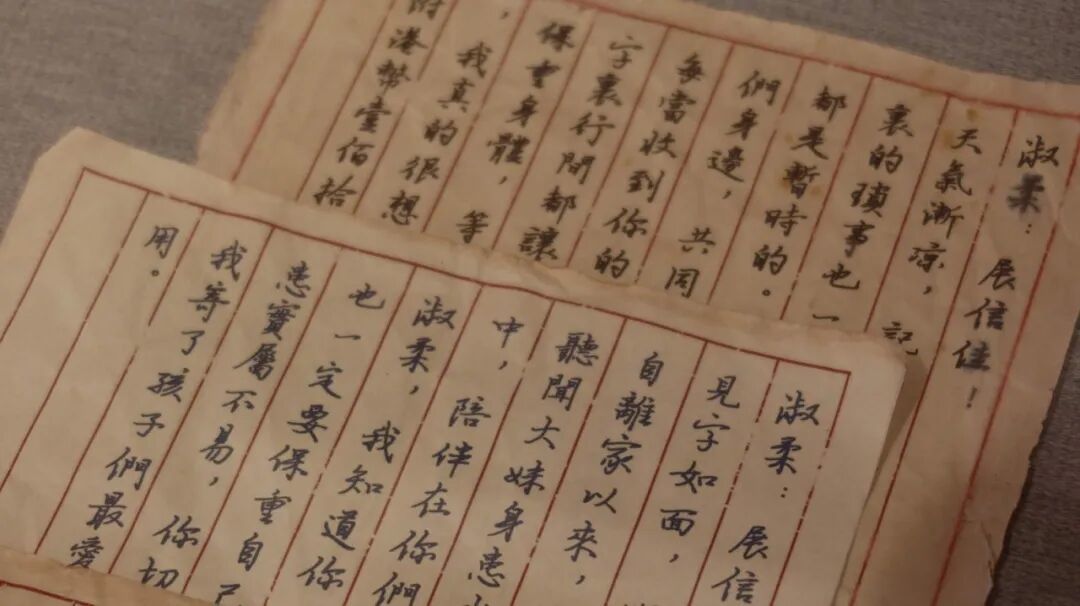 淑柔：展信佳！
天氣漸涼，記
裏的瑣事也一
都是暫時的。
們身邊，共同
每當收到你的
字裏行間都讓
保重身體，等
，我真的很想
附港幣壹佰拾
淑柔：展信
見字如面，
自離家以來，
聽聞大妹身患
中，陪伴在你們
淑柔，我知道你
也一定要保重自己
患實屬不易，你切
我等了孩子們最愛
用。